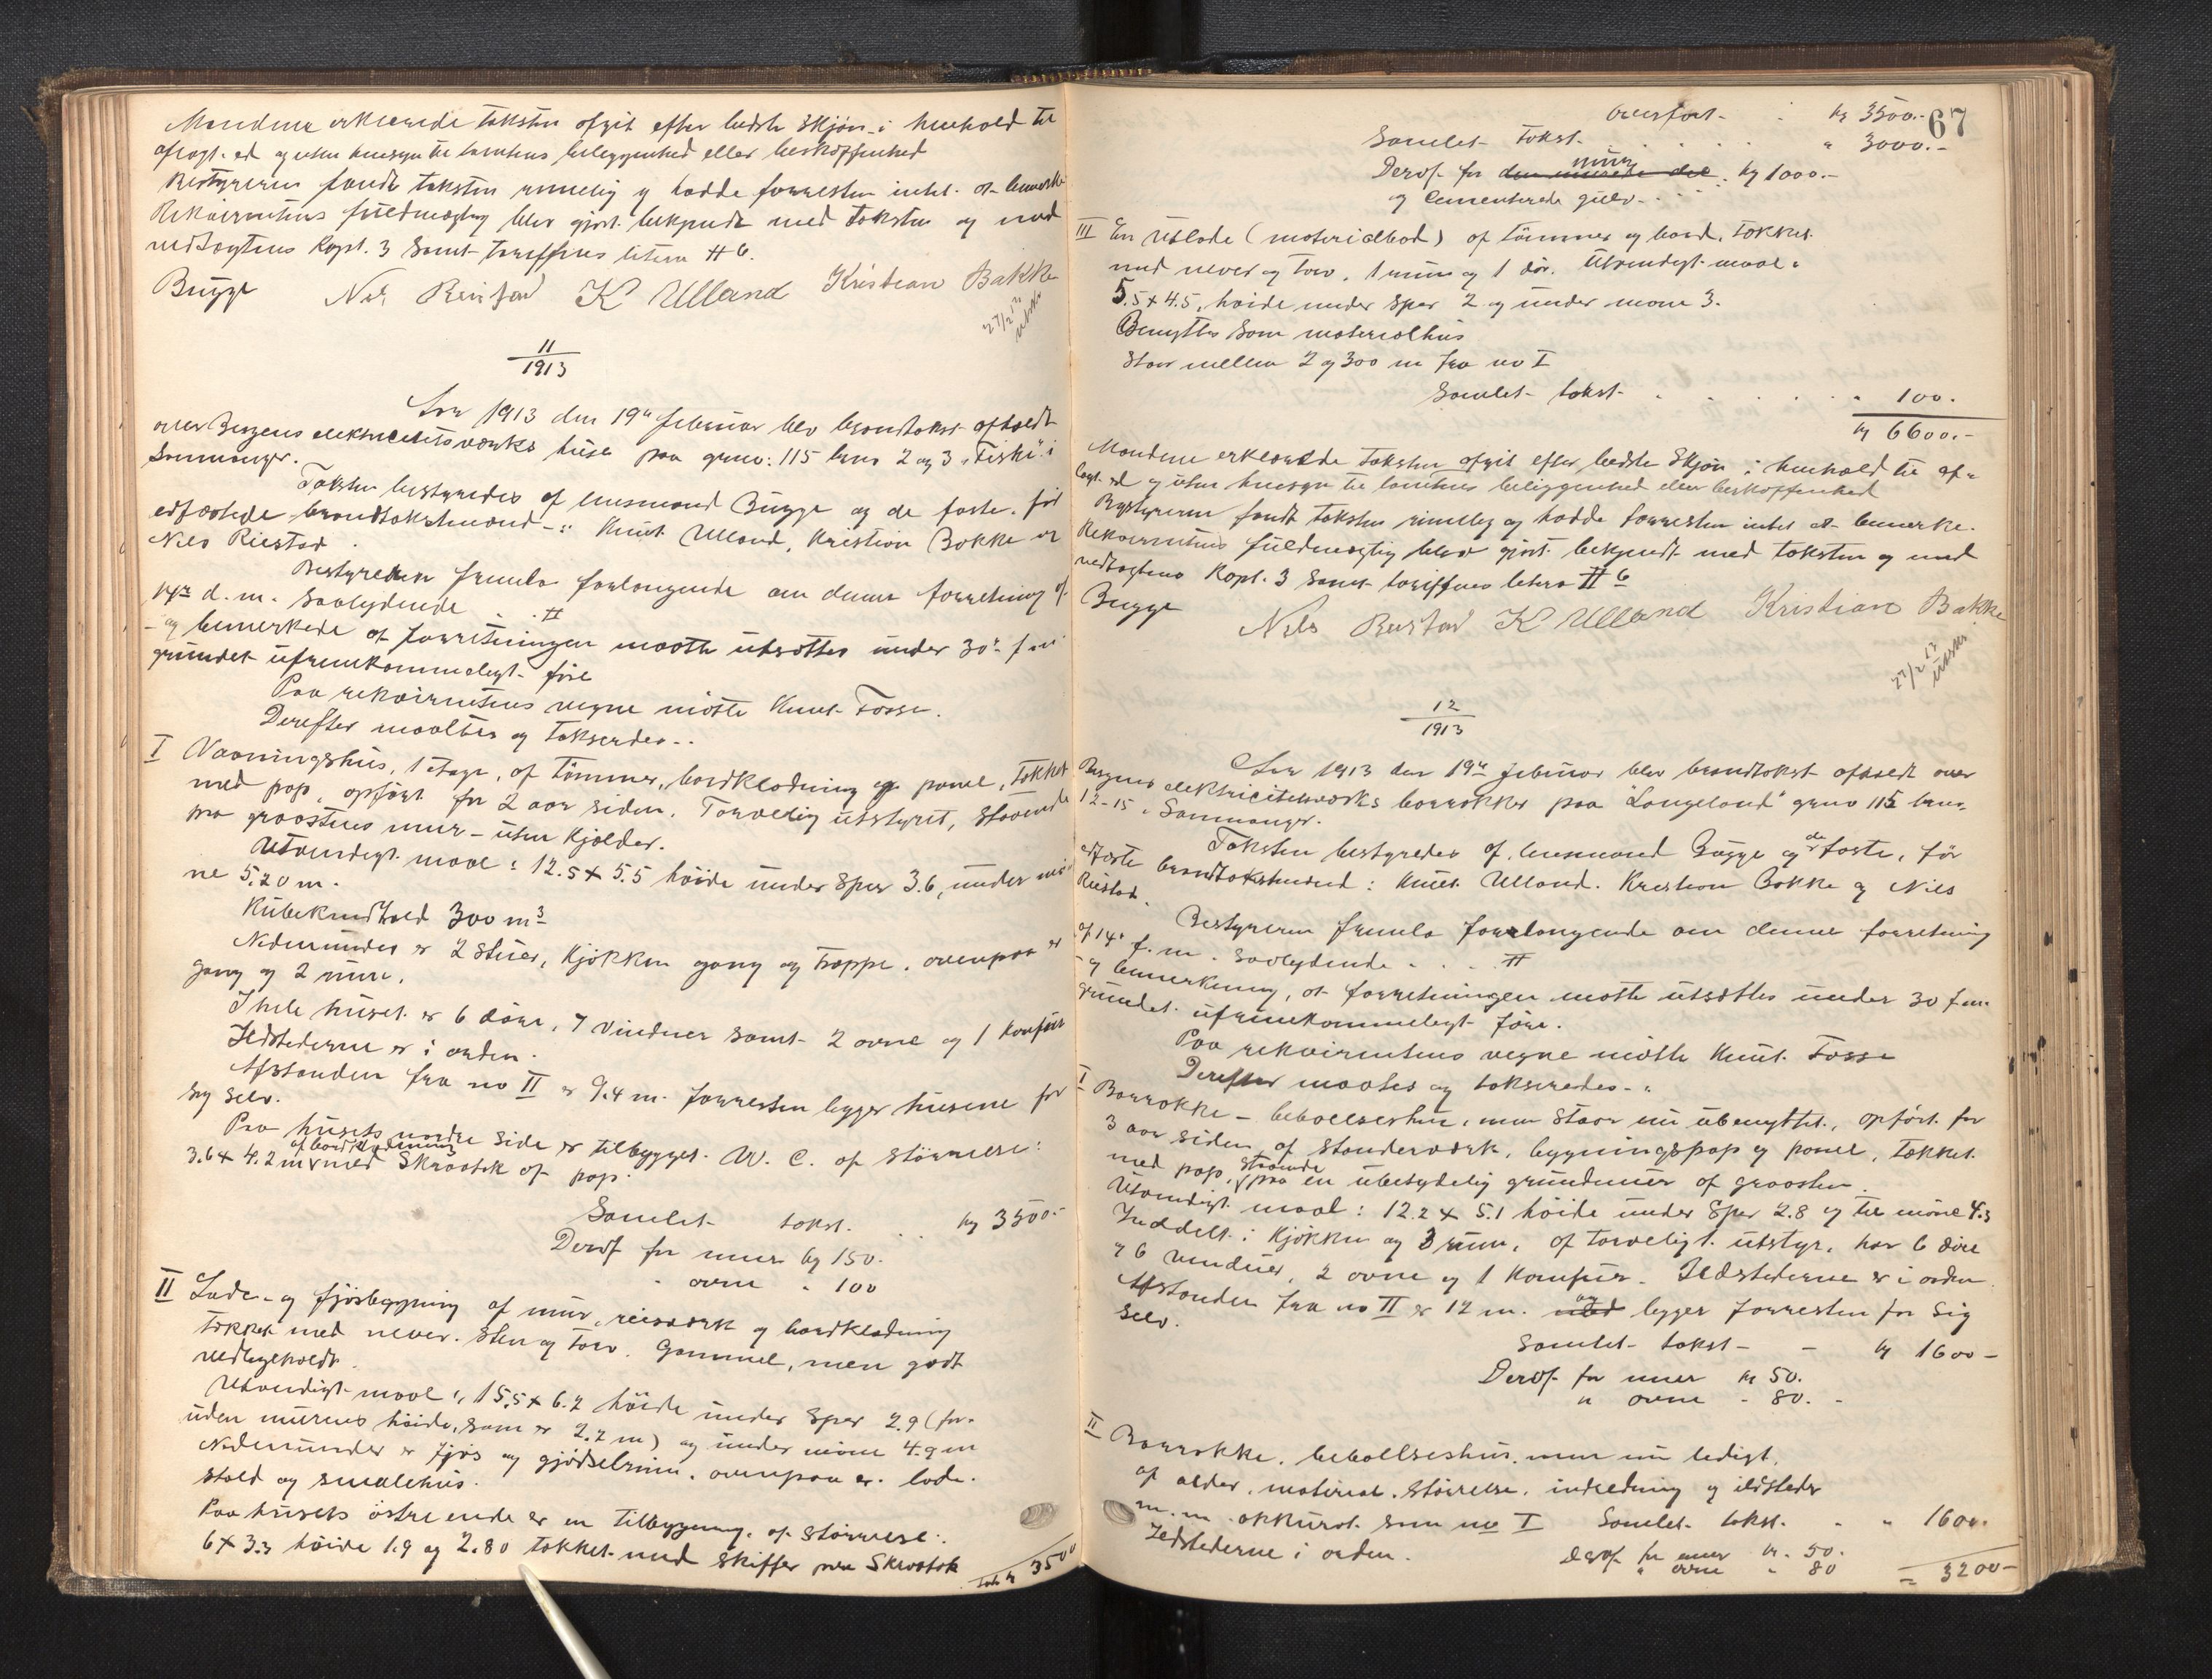 Mændene erklærede taksten afgit efter bedste Skjøn i henhold til
aflagt ed og uten hensyn til tomtens beliggenhed eller beskaffenhed
Bestyreren fandt taksten rimelig og hadde forresten intet at bemerke
Rekvirentens fuldmægtig blev gjort bekjendt med taksten og med
vedtægtens Kapt. 3 samt tariffens litera H 6.
Bugge Nils Reistad K Ulland Kristian Bakke
27/2 13
utskr
11
1913
Aar 1913 den 19de februar blev brandtakst afholdt
over Bergens elektricitetsværks huse paa gnr. 115 brno 2 og 3 "Fiske" i
Samnanger.
Taksten bestyredes af lensmand Bugge og de faste, før
edfæstede brandtakstmænd: Knut Ulland, Kristian Bakke og
Nils Reistad.
Bestyreren fremla forlangende om denne forretning af
14de d.m. saalydende . . #
- og bemerkede at forretningen maatte utsættes under 30te f.m.
grundet ufremkommeligt føre
Paa rekvirentens vegne møtte Knut Fosse.
Derefter maaltes og takseredes..
I Vaaningshus, 1 etage, af tømmer, bordklædning og panel, tækket
med pap, opført for 2 aar siden. Tarvelig utstyret, staaende
paa graastens mur - uten kjelder.
Utvendigt maal: 12.5 x 5.5 høide under Sper 3.6, under mø-
ne 5.20 m.
Kubikindhold 300 m3
Nedenunder er 2 stuer, Kjøkken gang og trappe. ovenpaa er
gang og 2 rum.
I hele huset er 6 døre, 7 vinduer samt 2 ovne og 1 Komfur
Ildstederne er i orden.
Afstanden fra no II er 9.4 m. forresten ligger husene for
sig selv.
Paa husets nordre side er tilbygget W. C. af størrelse:
3.6 x 4.2 m af bordklædning med Skraatak af pap.
Samlet takst. . . kr 3500.-
Deraf for mur kr 150.
" ovne " 100
II Lade- og fjøsbygning af mur, reisværk og bordklædning
tækket med never. Sten og torv. Gammel, men godt
vedligeholdt.
Utvendigt maal: 15.5 x 6.2 høide under Sper 2.9 (for-
uden murens høide, som er 2.2 m) og under møne 4.9 m
Nedenunder er fjøs og gjødselrum. ovenpaa er lade.
stald og smalehus.
Paa husets østre ende er en tilbygning af størrelse:
6 x 3.3 høide 1.9 og 2.80 tækket med skiffer paa Skraatak
Lat. kr 3500
67
Overført . kr 3500.-
Samlet takst. . . . " 3000.-
Deraf for den murede del mur kr 1000.-
og Cementerede gulv. .
III En Utlade (materialbod) af tømmer og bord, tækket
med never og torv. 1 rum og 1 dør. Utvendigt maal:
5.5 x 4.5, høide under Sper 2 og under møne 3.
Benyttes som materialhus
Staar mellem 2 og 300 m fra no I
Samlet takst . . . . " 100.
kr 6600.-
Mændene erklærede taksten afgit efter bedste Skjøn i henhold til af-
lagt ed og uten hensyn til tomtens beliggenhed eller beskaffenhed
Bestyreren fandt taksten rimelig og hadde forresten intet at bemerke.
Rekvirentens fuldmægtig blev gjort bekjendt med taksten og med
vedtægtens Kapt. 3 samt tariffens litera H 6
Bugge Nils Reistad K Ulland Kristian Bakke
27/2 13
utskr
12
1913
Aar 1913 den 19de februar blev brandtakst afholdt over
Bergens elektricitetsværks barrakker paa "Langeland" gnr 115 brno
12-15 i Samnanger.
Taksten bestyredes af lensmand Bugge og de faste, før
edfæste brandtakstmænd: Knut Ulland. Kristian Bakke og Nils
Reistad.
Bestyreren fremla forlangende om denne forretning
af 14de f. m. saalydende . . . #
- og bemerkning, at forretningen maatte utsættes under 30 f.m.
grundet ufremkommeligt føre.
Paa rekvirentens vegne møtte Knut Fosse
Derefter maaltes og takseredes..
I Barrakke - beboelseshus, men staar nu ubenyttet, opført for
3 aar siden af standerværk, bygningspap og panel, tækket
med pap, staaende paa en ubetydelig grundmur af graasten.
Utvendigt maal: 12.2 x 5.1 høide under Sper 2.8 og til møne 4.3
Inddelt i Kjøkken og 3 rum, af tarveligt utstyr, har 6 døre
og 6 vinduer, 2 ovne og 1 Komfur. Ildstederne er i orden.
Afstanden fra no II er 12 m. og ligger forresten for sig
selv.
Samlet takst - - kr 1600 -
Deraf for mur kr 50.
" ovne - 80. -
II Barrakke, beboelseshus. men nu ledigt.
af alder, material, størrelse, indredning og ildsteder
m. m. akkurat som no I Samlet takst. . " 1600.
Ildstederne i orden. Deraf for mur kr. 50.
" ovne " 80
= 3200 -